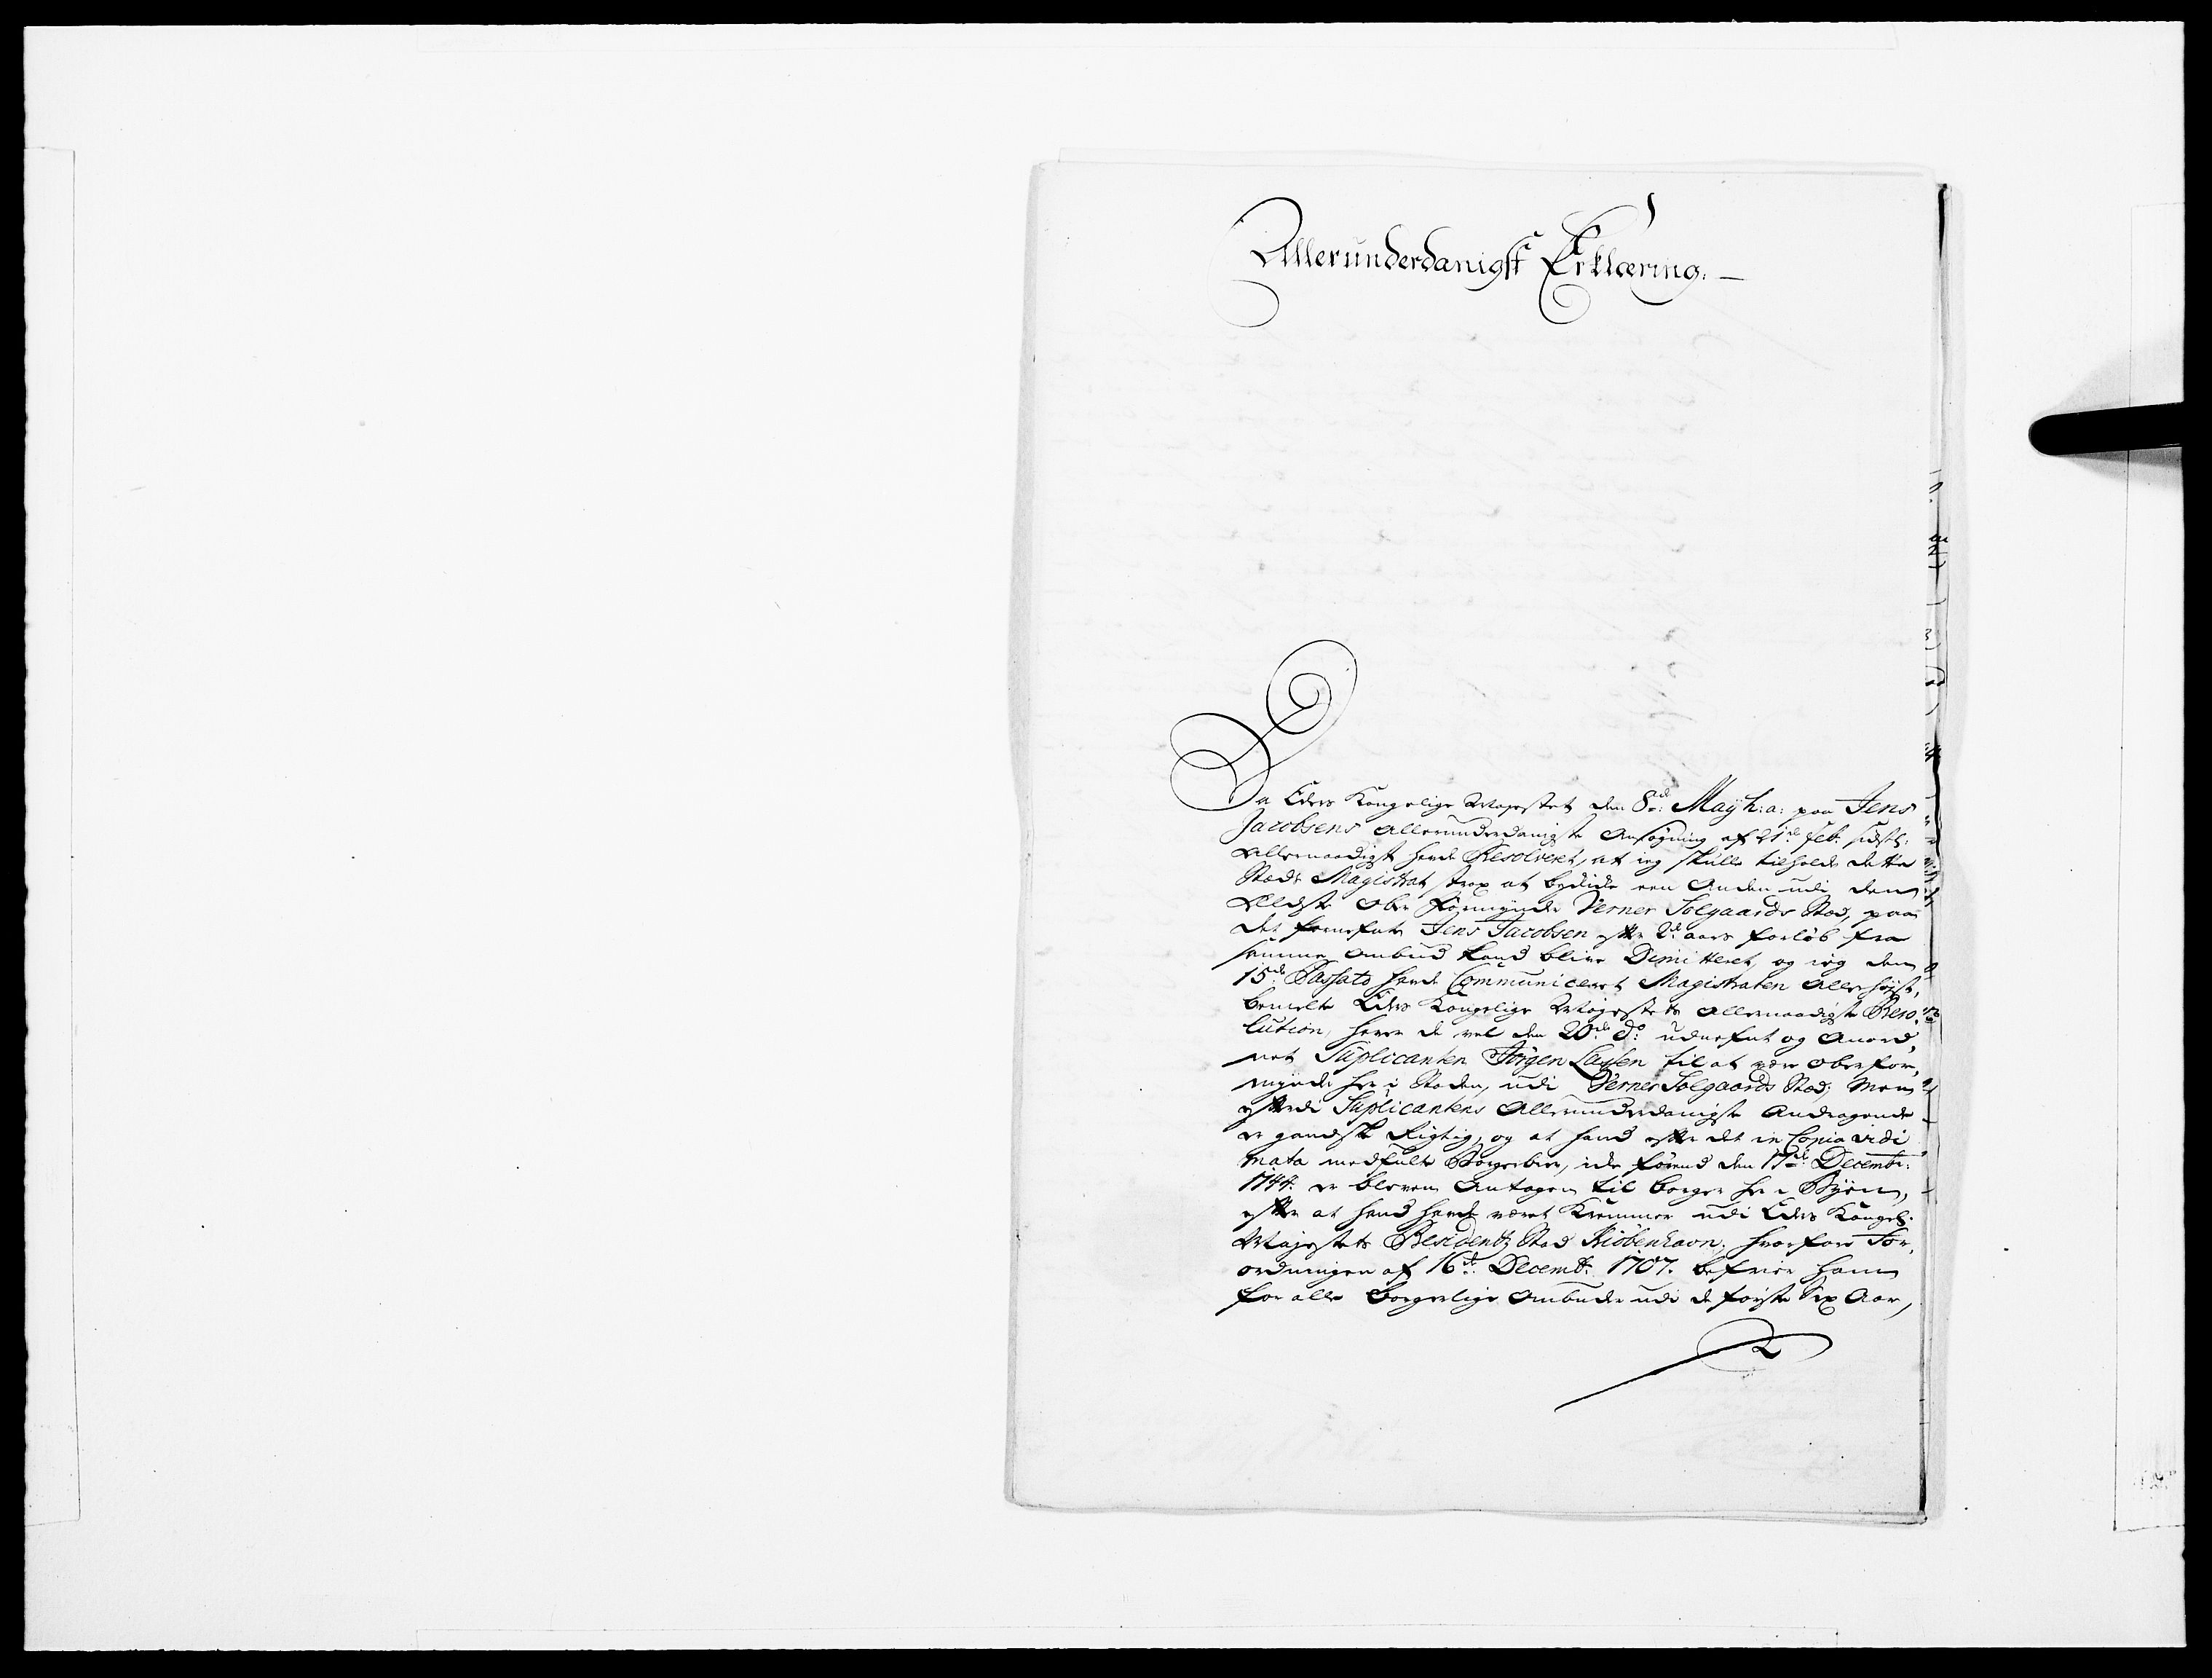 Allerunderdanigst Erklæring. —
Da Eders Kongelige Mayestet den 8de: Maÿ h: a: paa Jens
Jacobsens allerunderdanigste Ansøgning af 21de Feb: sidstl:
allernaadigst havde Resolveret, at ieg skulle tilholde dette
Stæds Magistrat strax at beskicke een Anden udi den
Ældste Ober Formynder Verner Solgaards Stæd, paa
det fornefnte Jens Jacobsen efter 2de aars forløb fra
samme Ombud kand blive Demitteret, og ieg den
15de Passato havde Communiceret Magistraten Allerhøyst,
bemelte Eders Kongelige Mayestets allernaadigste Reso,
lution, haver de vel den 20de do: udnefnt og Anord,
net Suplicanten Jørgen Laÿsen til at være Oberfor,
mynder her i Staden, udi Verner Solgaards Stæd; Men
efterdi Suplicantens allerunderdanigste Andragende
er gandske Rigtig, og at hand efter det in Copia vidi
mata medfulte Borgerbrev, icke førend den 17de Decembr:
1744. er bleven Antagen til Borger her i Byen,
efter at hand havde været Kræmmer udi Eders Kongel:
Mayestets Residentz Stad Kiøbenhavn; hvorfore For,
ordningen af 16de: Decembr: 1707. befrier ham
for alle borgerlige Ombude udi de første Sex Aar,